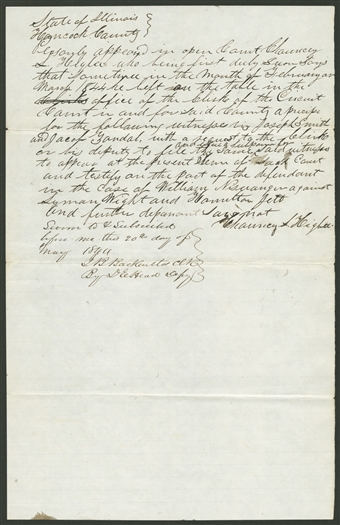 State of Illinois
Hancock County
Personly appeared in open Court Chauncey
L Higbee who being first duly Sworn Says
that Sometime in the Month of February or
March 1844 he left on the table in the
office of the Clerk of the Circuit
Court in and for Said County a precipe
for the following witnesses viz Joseph Smith
and Jacob with a request to the Clerk
or his deputy to file the Same and issue subpoena for Said witnesses
to appear at the present term of Said Court
and testify on the part of the defendant
in the Case of against
Lyman Wight and Hamilton Jett
and further deponant Says not
Chauncey L Higbee
Sworn to & Subscribed
before me this 20th day of
May 1844
J B Backenstos Clk
By D E Head Dpty